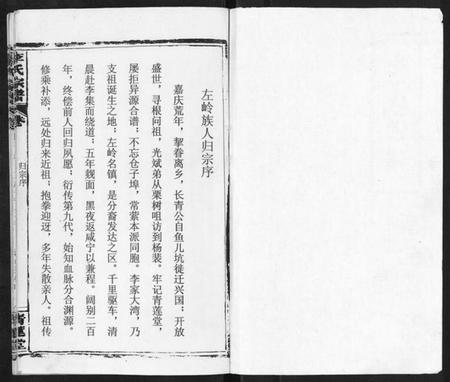 左岭族人归宗序
嘉庆荒年，挈眷离乡，长青公自鱼儿坑徙迁兴国；开放
盛世，寻根问祖，光斌弟从栗树咀访到杨装。牢记青莲堂，
屡拒异源合谱；不忘仓子埠，常萦本派同胞。李家大湾，乃
支祖诞生之地；左岭名镇，是分裔发达之区。千里驱车，清
晨赴李集而绕道；五年觌面，黑夜返咸宁以兼程。阔别二百
年，终偿前人回归夙愿；衍传第九代，始知血脉分合渊源。
修乘补添，远处归来近祖；抱拳迎迓，多年失散亲人。祖传
李氏宗谱
卷
归宗序
一
青莲堂